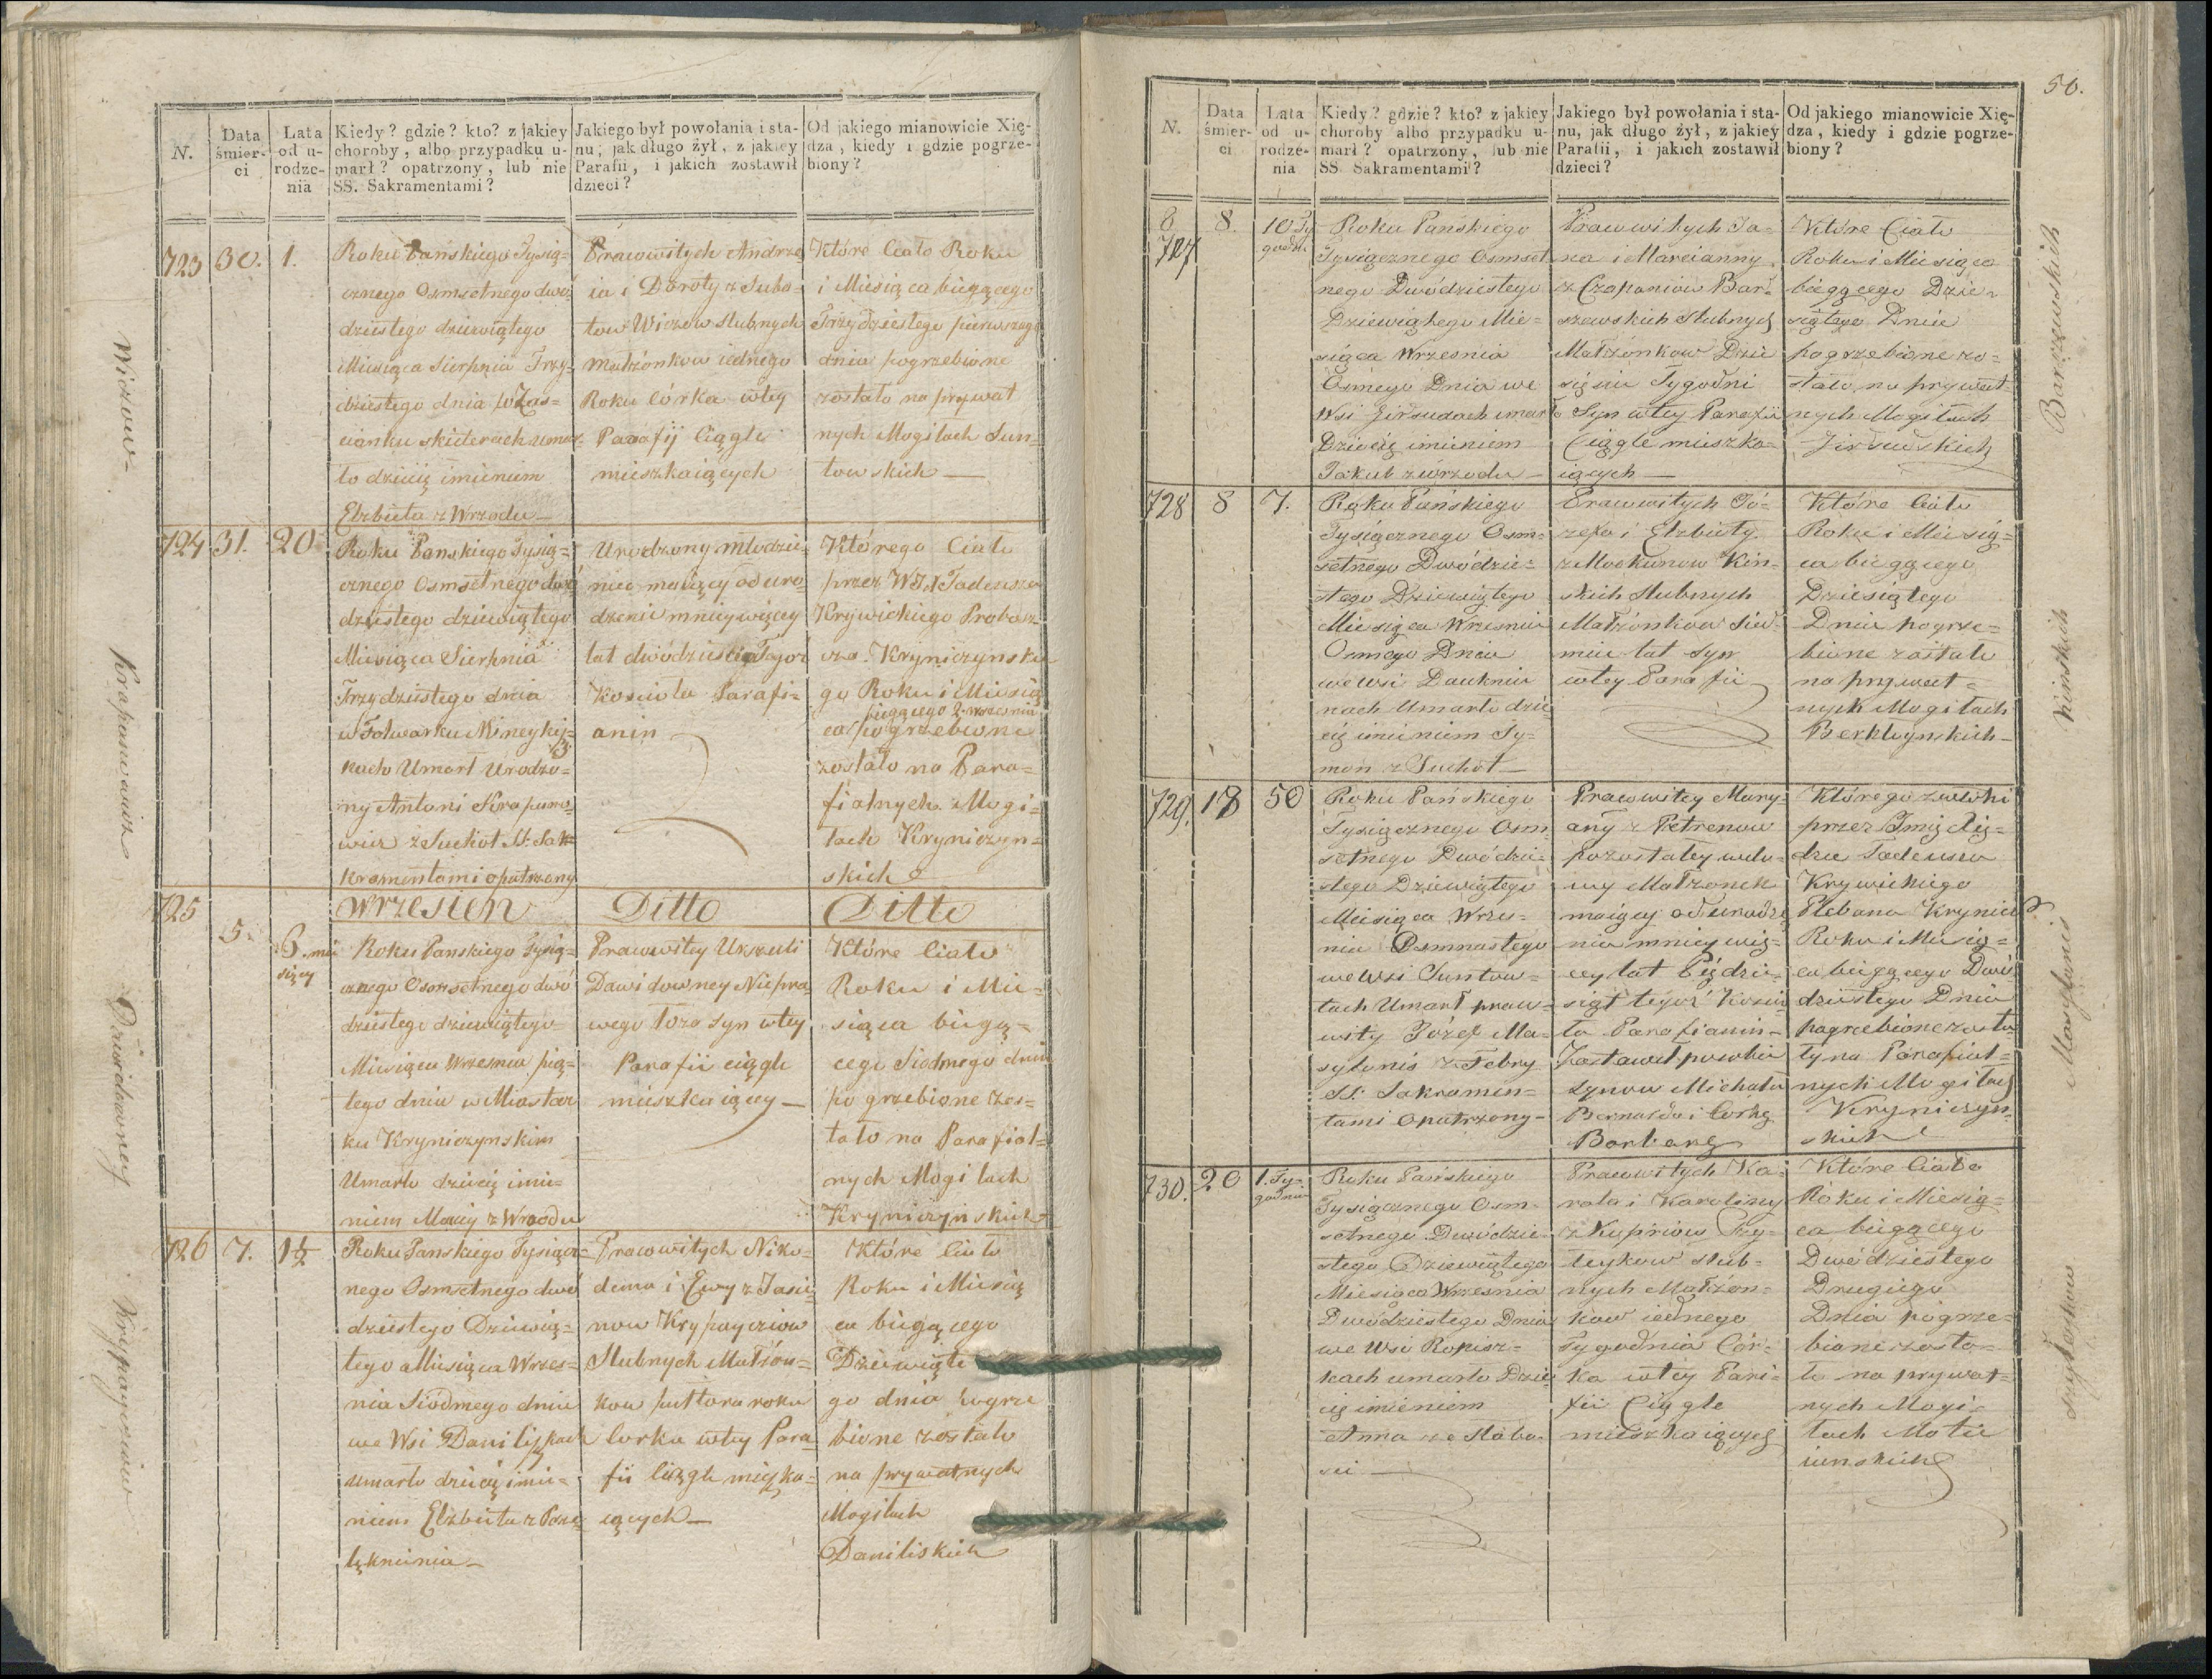 N.
Data śmier- ci
Lata od u- rodze- nia
Kiedy? gdzie? kto? z jakiey
choroby, albo przypadku u-
marł? opatrzony, lub nie
SS. Sakramentami?
Jakiego był powołania i sta-
nu, jak długo żył, z jakiey
Parafii, i jakich zostawił
dzieci?
Od jakiego mianowicie Xię-
dza, kiedy i gdzie pogrze-
biony?
723
30.
1.
Roku Pańskiego Tysią-
cznego Osmsetnego dwó
dziestego dziewiątego
Miesiąca Sierpnia Trzy-
dziestego dnia w Zas-
cianku umar-
ło dziecię imieniem
Elzbieta z Wrzodu
Prawowitych Andrze
ia i Doroty z
Wizow slubnych
małżonkow iednego
Roku Córka wtey
Parafij Ciągle
mieszkaiących
Które Ciało Roku
i Miesiąca bieżącego
Trzydziestego pierwszego
dnia pogrzebione
zostało na prywat
nych Mogiłach Sun-
towskich
Wizow
724
31.
20
Roku Pańskiego Tysią=
cznego Osmsetnego dwó
dziestego dziewiątego
Miesiąca Sierpnia
Trzydziestego dnia
w Folwarku
Umarł Urodzo=
ny Antoni Krapano
wicz z Suchot SS. Sak=
kramentami opatrzony
Urodzony młodzie=
niec maiący od uro
dzenia mniey więcey
lat dwódziescia Tegoż
Koscioła Parafi=
anin
Którego Ciało
przez WJX Tadeusza
Krywickiego Probosz
cza Kryniczynskie
go Roku i Miesią
bieżącego 2 wrzesnia
ca pogrzebione
zostało na Para=
fialnych Mogi=
łach Kryniczyn=
skich
Krapanowicz
725
5.
6. mie
sięcy
Wrzesień
Ditto
Ditto
Roku Pańskiego Tysią=
cznego Osmsetnego dwó
dziestego dziewiątego
Miesiąca Wrzesnia pią=
tego dnia w Miastecz
ku Kryniczynskim
Umarło dziecię imie=
niem Maciey z Wrzodu
Prawowitey Urszuli
Dawidowney Niepra=
wego Łoża Syn wtey
Parafii ciągle
mieszkaiącey
Które Ciało
Roku i Mie=
siąca bieżą=
cego Siodmego dnia
pogrzebione zos=
tało na Parafial=
nych Mogiłach
Kryniczynskich
Dawidowney
726
7.
1½
Roku Pańskiego Tysiącz=
nego Osmsetnego dwó
dziestego Dziewią=
tego Miesiąca Wrzes=
nia Siodmego dnia
we Wsi Daniliszkach
umarło dziecię imie=
niem Elzbieta z Prze
lęknienia
Prawowitych Niko=
dema i Ewy z Jasie=
now Krypayciow
Slubnych Małżon=
kow półtora roku
Corka wtey Para=
fii Ciągle mieszka=
iących
Które Ciało
Roku i Miesią
ca bieżącego
Dziewiąte
go dnia pogrze
bione zostało
na prywatnych
Mogiłach
Daniliskich
Krypayciow
50.
N.
Data śmier- ci
Lata od u- rodze- nia
Kiedy? gdzie? kto? z jakiey
choroby albo przypadku u-
marł? opatrzony, lub nie
SS. Sakramentami?
Jakiego był powołania i sta-
nu, jak długo żył, z jakiey
Parafii, i jakich zostawił
dzieci?
Od jakiego mianowicie Xię-
dza, kiedy i gdzie pogrze-
biony?
727
8.
10 Ty
godni
Roku Pańskiego
Tysiącznego Osmset
nego Dwódziestego
Dziewiątego Mie=
siąca Wrzesnia
Osmego Dnia we
Wsi umarło
Dziecię imieniem
Jakub z wrzodu
Prawowitych Ja=
na i Marcianny
z Czaponiow Bar=
szewskich Slubnych
Małżonkow Dzie
sięciu Tygodni
Syn wtey Parafii
Ciągle mieszka=
iących
Które Ciało
Roku i Miesiąca
bieżącego Dzie=
siątego Dnia
pogrzebione zo=
stało na prywat=
nych Mogiłach
Barszewskich
728
8
7.
Roku Pańskiego
Tysiącznego Osm=
setnego Dwódzie=
stego Dziewiątego
Miesiąca Wrzesnia
Osmego Dnia
we wsi Dauknie
nach Umarło dzie
cię imieniem Sy=
mon z Suchot
Prawowitych Jó=
zefa i Elzbiety
z Mockunow Kin=
skich Slubnych
Małżonkow Sied=
miu lat Syn
wtey Parafii
Które Ciało
Roku i Miesią=
ca bieżącego
Dziesiątego
Dnia pogrze=
bione zostało
na prywat=
nych Mogiłach
Kinskich
729.
18
50
Roku Pańskiego
Tysiącznego Osm
setnego Dwódzie=
stego Dziewiątego
Miesiąca Wrze=
nia Osmnastego
we Wsi Suntow=
tach Umarł prawo=
wity Józef Ma=
sylonis z Febry
SS. Sakramen=
tami Opatrzony
Prawowitey Mary=
any z Petrenow
pozostałey wdo=
wy Małżonek
maiący od urodze
nia mniey wię=
cey lat Pięćdzie=
siąt tegoż Koscio
ła Parafianin
Zostawił po sobie
Synow Michała
Bernarda i Corkę
Barbarę
Którego zwłoki
przez Jmię Xię=
dza Tadeusza
Krywickiego
Plebana Krynic
Roku i Miesią=
ca bieżącego Dwó
dziestego Dnia
pogrzebione zosta
ły na Parafial=
nych Mogiłach
Kryniczyn
skich
Masylonis
730.
20
1. Ty-
godnia
Roku Pańskiego
Tysiącznego Osm=
setnego Dwódzie=
stego Dziewiątego
Miesiąca Wrzesnia
Dwódziestego Dnia
we Wsi Ropisz=
kach umarło Dzie
cię imieniem
Anna ze słabo
sci
Prawowitych Ka=
rola i Karoliny
z Kupriow
slub=
nych Małżon=
kow iednego
Tygodnia Cór=
ka wtey Para=
fii Ciągle
mieszkaiących
Które Ciało
Roku i Miesią=
ca bieżącego
Dwódziestego
Drugiego
Dnia pogrze=
bione zosta=
ło na prywat=
nych Mogi=
łach